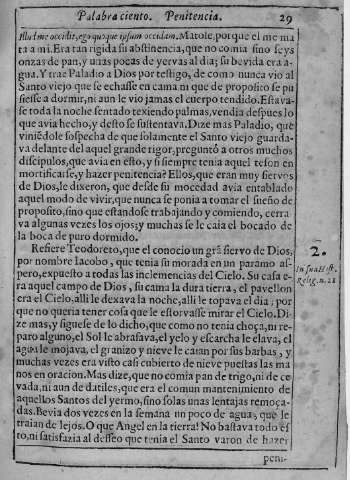 Palabra ciento. Penitencia. 29
Illut me occidit, ego quoque ipsum occidam. Matole, porque el me ma
ta a mi. Era tan rigida su abstinencia, que no comia sino seys
onzas de pan, y unas pocas de yervas al dia; su bevida era a-
gua. Y trae Paladio a Dios por testigo, de como nunca vio al
Santo viejo que se echasse en cama ni que de proposito se pu
siesse a dormir, ni aun le vio jamas el cuerpo tendido. Estava-
se toda la noche sentado texiendo palmas, vendia despues lo
que avia hecho, y desto se sustentava. Dize mas Paladio, que
viniēdole sospecha de que solamente el Santo viejo guarda-
va delante del aquel grande rigor, preguntò a otros muchos
discipulos, que avia en esto, y si siempre tenia aquel teson en
mortificarse, y hazer penitencia? Ellos, que eran muy siervos
de Dios, le dixeron, que desde su mocedad avia entablado
aquel modo de vivir, que nunca se ponia a tomar el sueño de
proposito, sino que estandose trabajando y comiendo, cerra
va algunas vezes los ojos; y muchas se le caia el bocado de
la boca de puro dormido.
Refiere Teodoreto, que el conocio un grā siervo de Dios,
por nombre Iacobo, que tenia su morada en un paramo as-
pero, expuesto a todas las inclemencias del Cielo. Su casa e-
ra aquel campo de Dios, su cama la dura tierra, el pavellon
era el Cielo, alli le dexava la noche, alli le topava el dia; por
que no queria tener cosa que le estorvasse mirar el Cielo. Di
ze mas, y siguese de lo dicho, que como no tenia choça, ni re-
paro alguno, el Sol le abrasava, el yelo y escarcha le elava, el
agua le mojava, el granizo y nieve le caian por sus barbas, y
muchas vezes era visto casi cubierto de nieve puestas las ma
nos en oracion. Mas dize, que no comia pan de trigo, ni de ce
vada, ni aun de datiles, que era el comun mantenimiento de
aquellos Santos del yermo, sino solas unas lentajas remoja-
das. Bevia dos vezes en la semana un poco de agua, que le
traian de lejos. O que Angel en la tierra! No bastava todo es
to, ni satisfazia al desseo que tenia el Santo varon de hazer
peni-
2.
In sua Hist.
Relig. n. 21